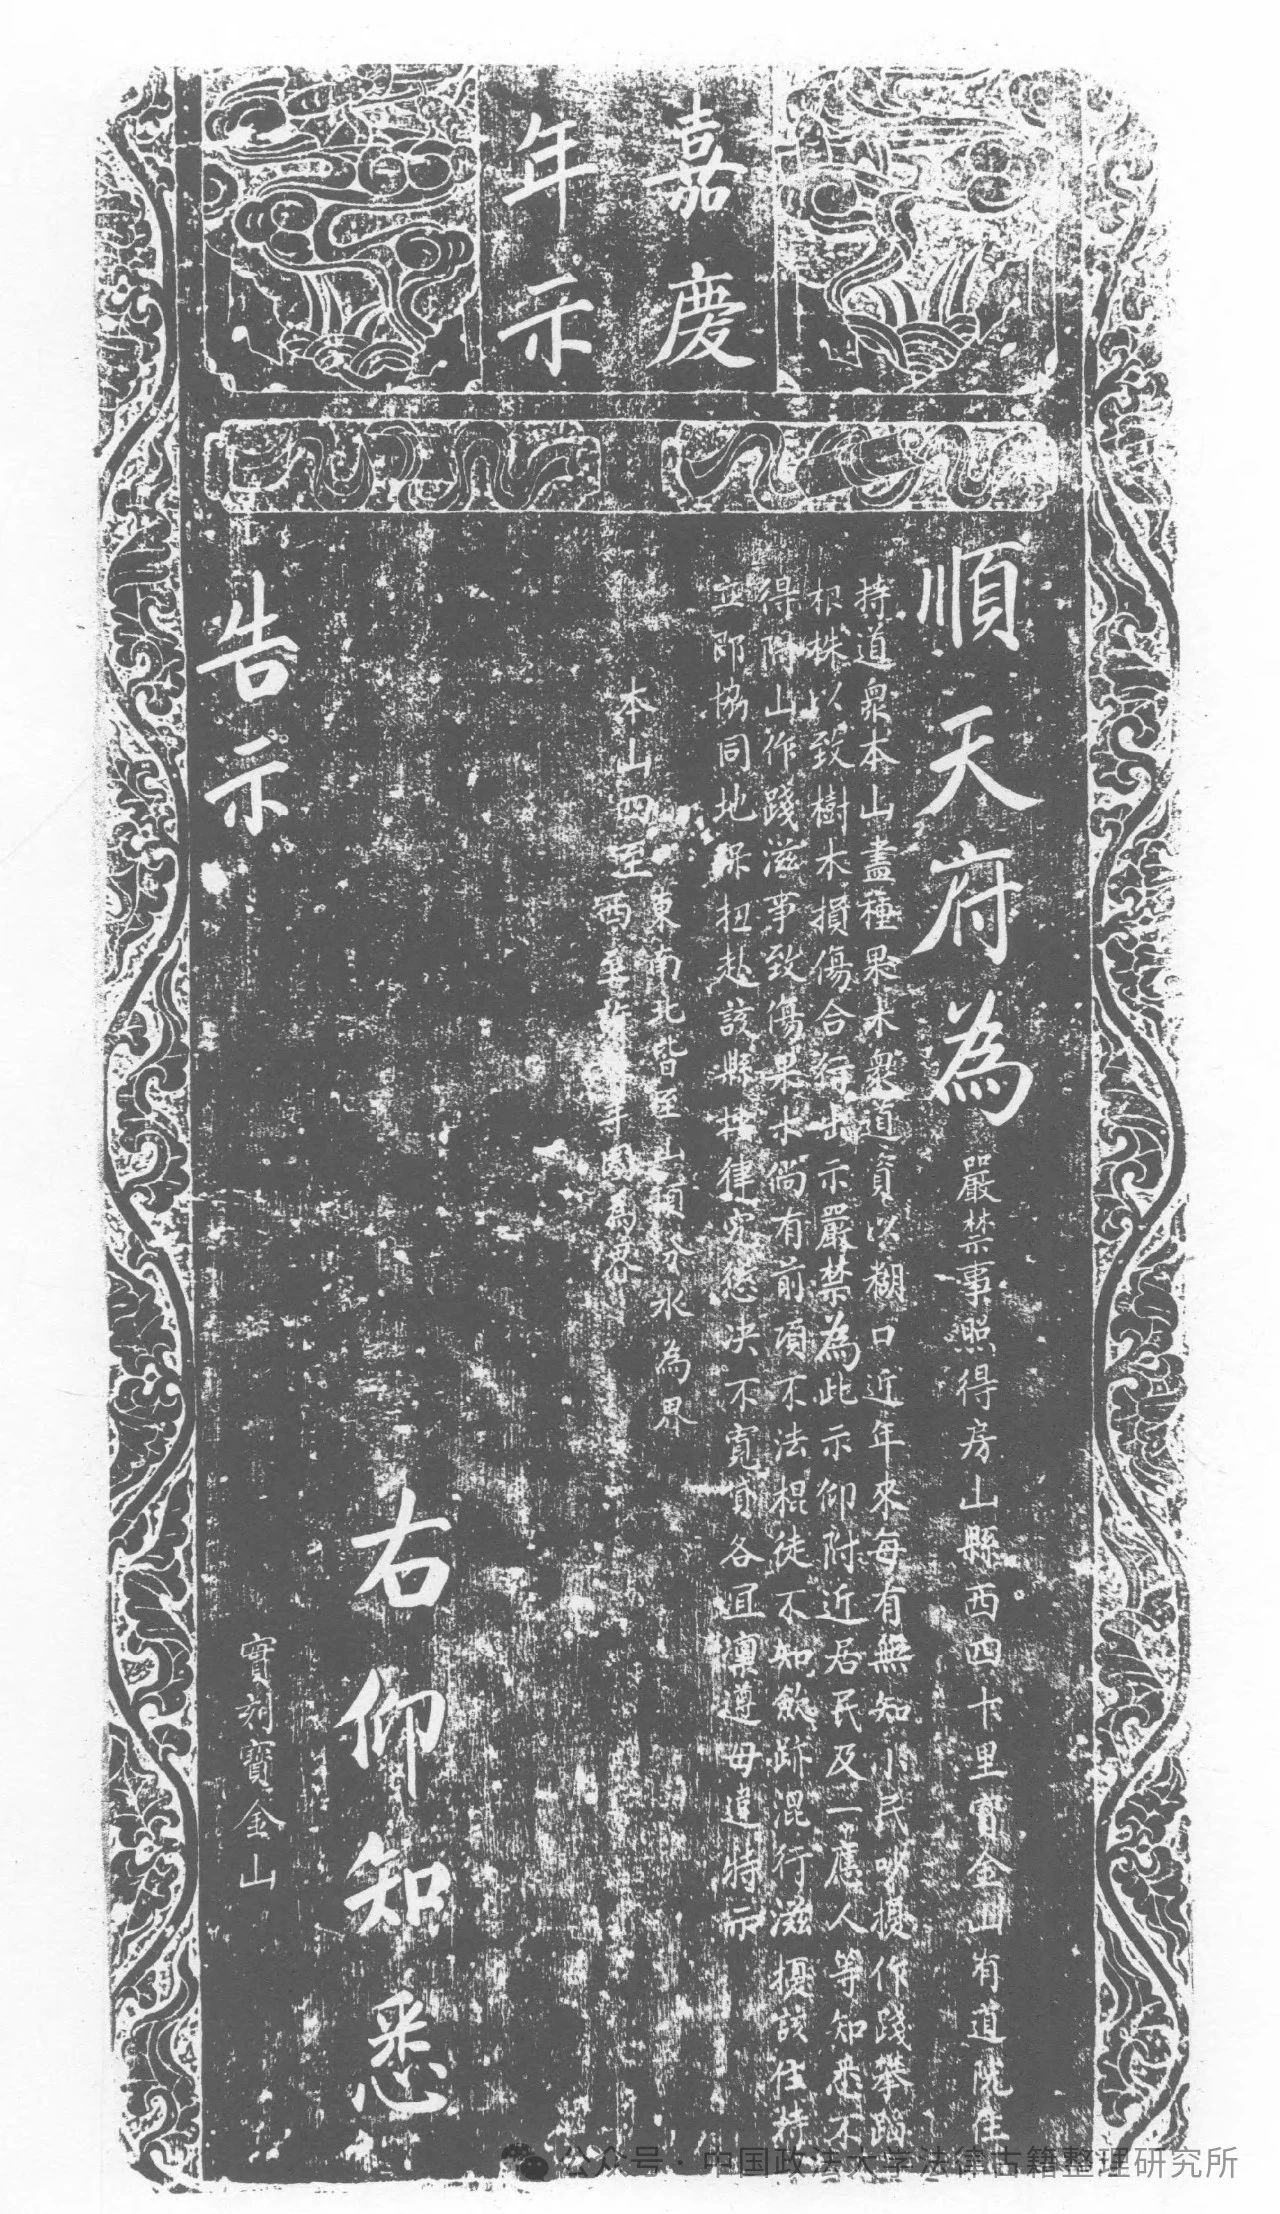 嘉慶
年示
順天府為嚴禁事照得房山縣西四十里寶金山有道院住
持道眾本山盡種果木眾道資以糊口近年來每有無知小民吵擾作踐攀蹈
根株以致樹木損傷合行出示嚴禁為此示仰附近居民及一應人等知悉不
得附山作踐滋事致傷果木倘有前項不法棍徒不知斂跡混行滋擾該住持
立即協同地保扭赴該縣按律究懲決不寬貸各宜凜遵毋違特示
東南北皆至山頂分水為界
本山四至
西至為界
右仰知悉
告示
實刻寶金山
公众号·中国政法大学法律古籍整理研究所